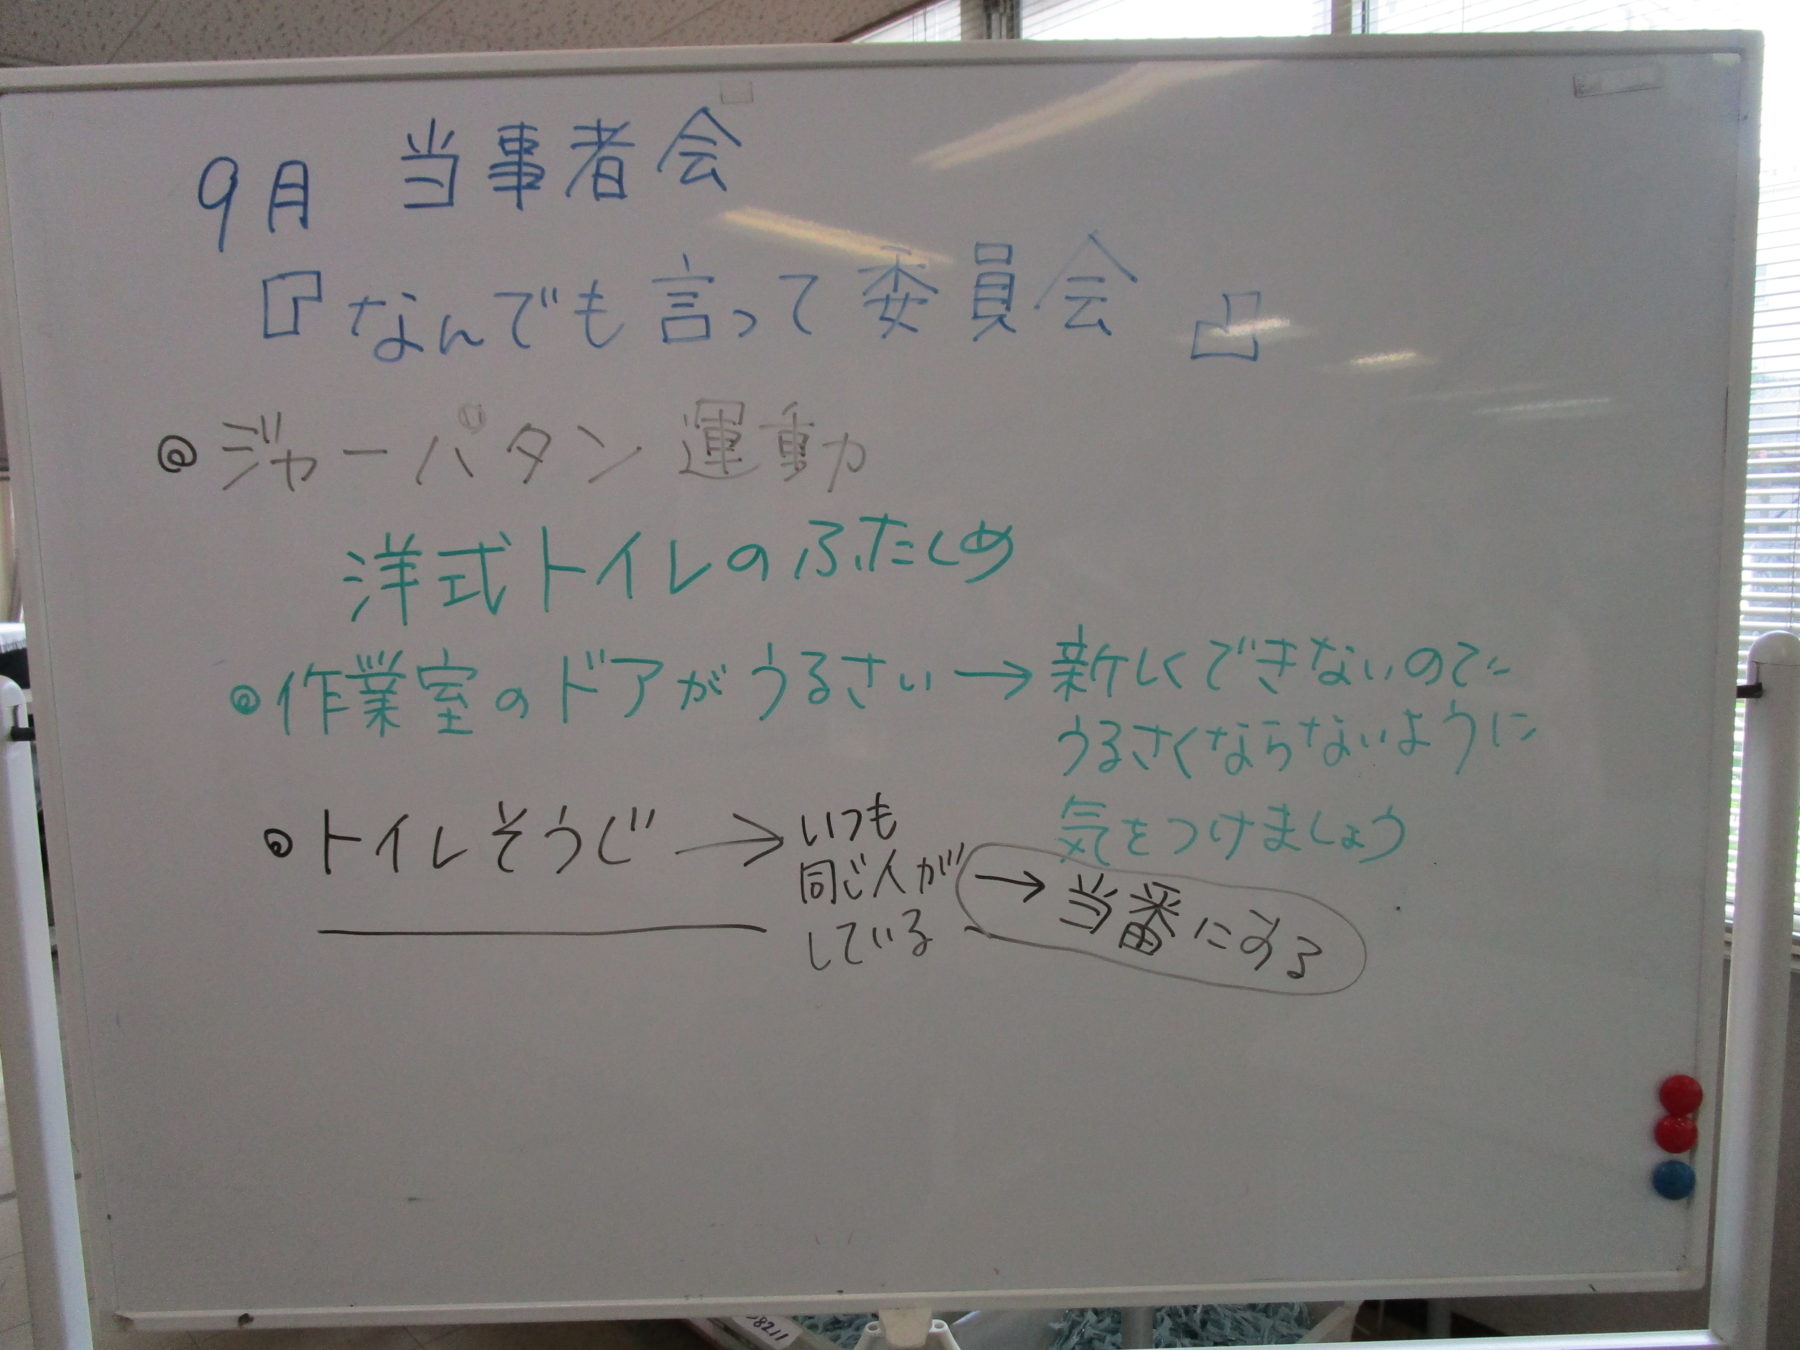 9月 当事者会
『なんでも言って委員会』
◎ジャーパタン運動
洋式トイレのふたしめ
◎作業室のドアがうるさい→新しくできないので
うるさくならないように
気をつけましょう
◎トイレそうじ→いつも
同じ人が
している
→当番にする
8211